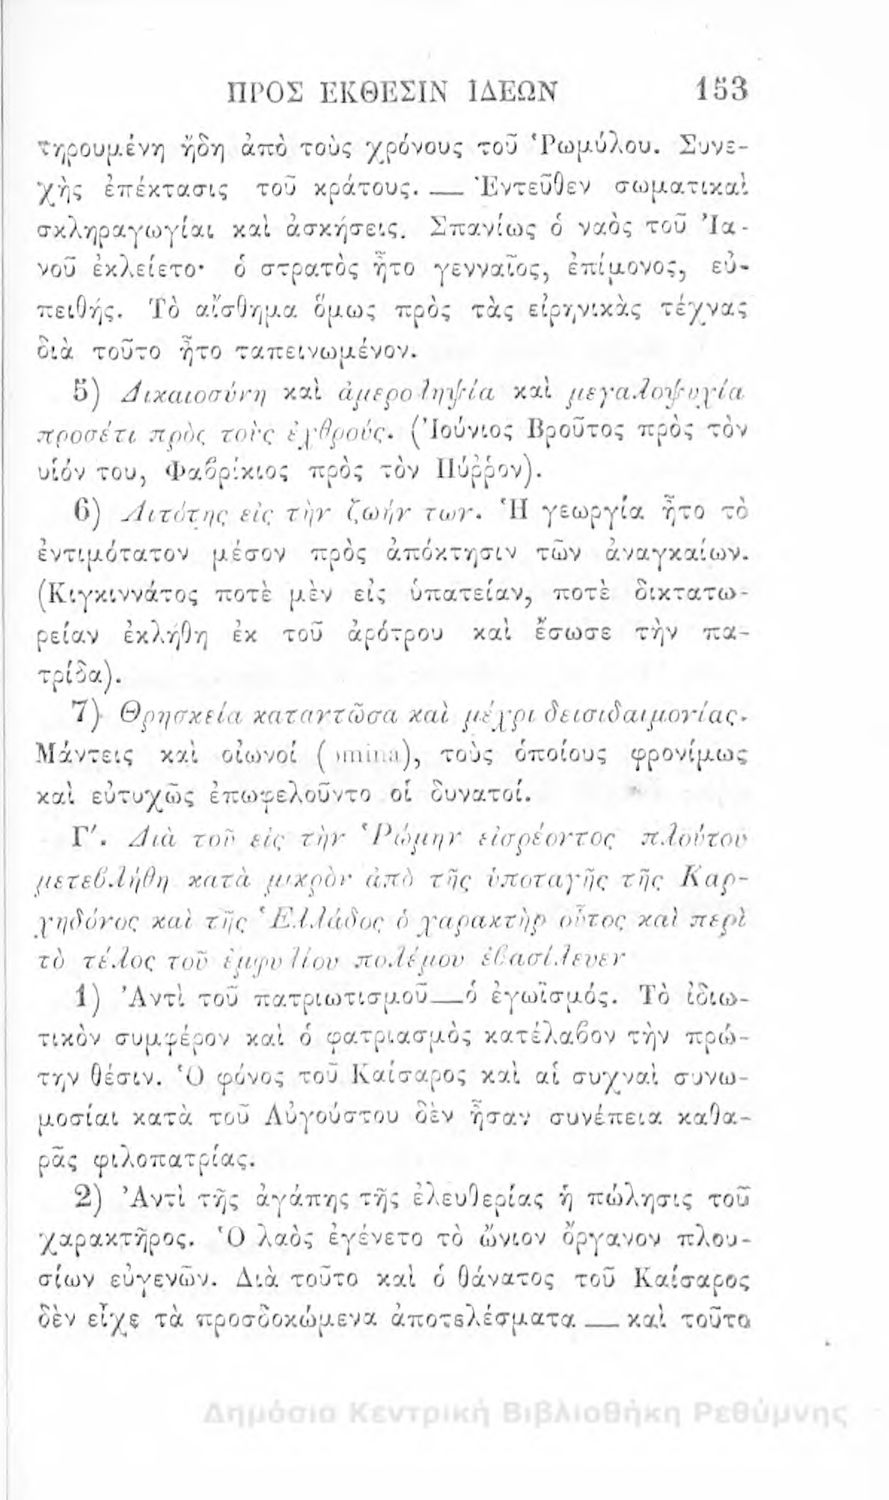 ΠΡΟΣ ΕΚΘΕΣΙΝ ΙΔΕΩΝ 153
τηρουμένη ἤδη ἀπὸ τοὺς χρόνους τοῦ Ῥωμύλου. Συνε-
χὴς ἐπέκτασις τοῦ κράτους. — Ἐντεῦθεν σωματικαὶ
σκληραγωγίαι καὶ ἀσκήσεις. Σπανίως ὁ ναὸς τοῦ Ἰα-
νοῦ ἐκλείετο· ὁ στρατὸς ἦτο γενναῖος, ἐπίμονος, εὐ-
πειθής. Τὸ αἴσθημα ὅμως πρὸς τὰς εἰρηνικὰς τέχνας
διὰ τοῦτο ἦτο ταπεινωμένον.
5) Δικαιοσύνη καὶ ἀμεροληψία καὶ μεγαλοψυχία
προσέτι πρὸς τοὺς ἐχθρούς. (Ἰούνιος Βροῦτος πρὸς τὸν
υἱόν του, Φαβρίκιος πρὸς τὸν Πύῤῥον).
6) Λιτότης εἰς τὴν ζωήν των. Ἡ γεωργία ἦτο τὸ
ἐντιμότατον μέσον πρὸς ἀπόκτησιν τῶν ἀναγκαίων.
(Κιγκιννάτος ποτὲ μὲν εἰς ὑπατείαν, ποτὲ δικτατω-
ρείαν ἐκλήθη ἐκ τοῦ ἀρότρου καὶ ἔσωσε τὴν πα-
τρίδα).
7) Θρησκεία καταντῶσα καὶ μέχρι δεισιδαιμονίας.
Μάντεις καὶ οἰωνοί (omina), τοὺς ὁποίους φρονίμως
καὶ εὐτυχῶς ἐπωφελοῦντο οἱ δυνατοί.
Γ′. Διὰ τοῦ εἰς τὴν Ῥώμην εἰσρέοντος πλούτου
μετεβλήθη κατὰ μικρὸν ἀπὸ τῆς ὑποταγῆς τῆς Καρ-
χηδόνος καὶ τῆς Ἑλλάδος ὁ χαρακτὴρ οὗτος καὶ περὶ
τὸ τέλος τοῦ ἐμφυλίου πολέμου ἐβασίλευεν
1) Ἀντὶ τοῦ πατριωτισμοῦ—ὁ ἐγωϊσμός. Τὸ ἰδιω-
τικὸν συμφέρον καὶ ὁ φατριασμὸς κατέλαβον τὴν πρώ-
την θέσιν. Ὁ φόνος τοῦ Καίσαρος καὶ αἱ συχναὶ συνω-
μοσίαι κατὰ τοῦ Αὐγούστου δὲν ἦσαν συνέπεια καθα-
ρᾶς φιλοπατρίας.
2) Ἀντὶ τῆς ἀγάπης τῆς ἐλευθερίας ἡ πώλησις τοῦ
χαρακτῆρος. Ὁ λαὸς ἐγένετο τὸ ὤνιον ὄργανον πλου-
σίων εὐγενῶν. Διὰ τοῦτο καὶ ὁ θάνατος τοῦ Καίσαρος
δὲν εἶχε τὰ προσδοκώμενα ἀποτελέσματα — καὶ τοῦτο
Δημόσια Κεντρική Βιβλιοθήκη Ρεθύμνης